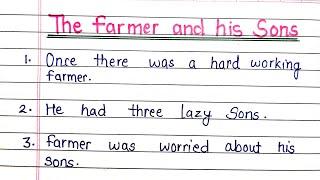 The Farmer and his Sons
1. Once there was a hard working
farmer.
2. He had three lazy Sons.
3. Farmer was worried about his
sons.